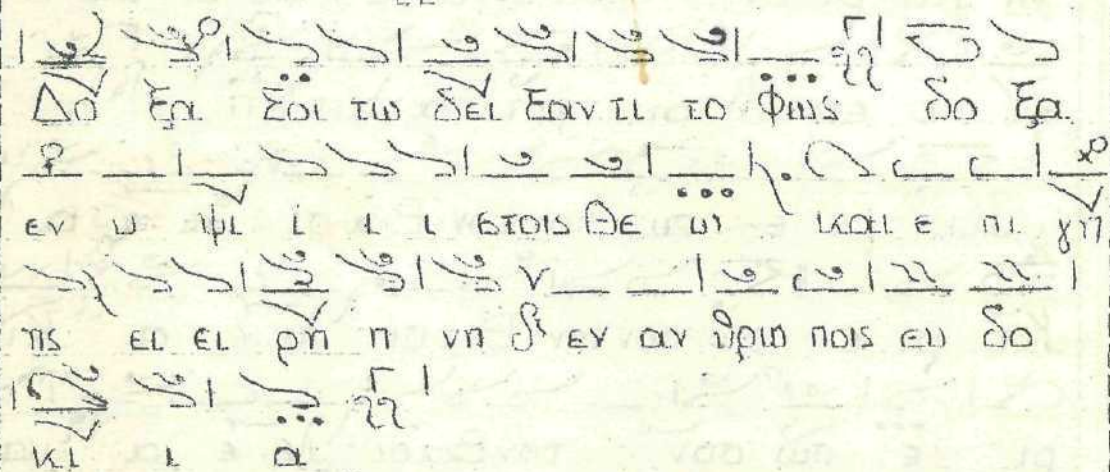 Δο ξα Σοι τω δει ξαν τι το Φως δο ξα
εν υ ψι ι ι ι στοις Θε ω και ε πι γη
ης ει ει ρη η νη εν αν θρω ποις ευ δο
κι ι α